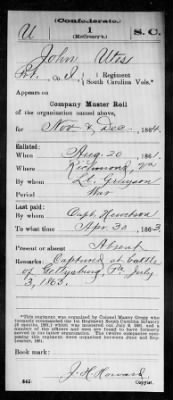 (Confederate.)
U 1 S. C.
(McCreary's.)
John Utes
Co. , 1 Regiment
South Carolina Vols.*
Appears on
Company Muster Roll
of the organization named above,
for Nov & Dec, 1864.
Enlisted:
When Aug. 20, 1861.
Where Richmond, Va
By whom Lt. Grayson
Period War
Last paid:
By whom Capt.
To what time Apr. 30, 1863.
Present or absent Absent
Remarks: Captured at battle
of Gettysburg, Pa. July
3, 1863.
Book mark:
J. H. Howard
(642) Copyist.